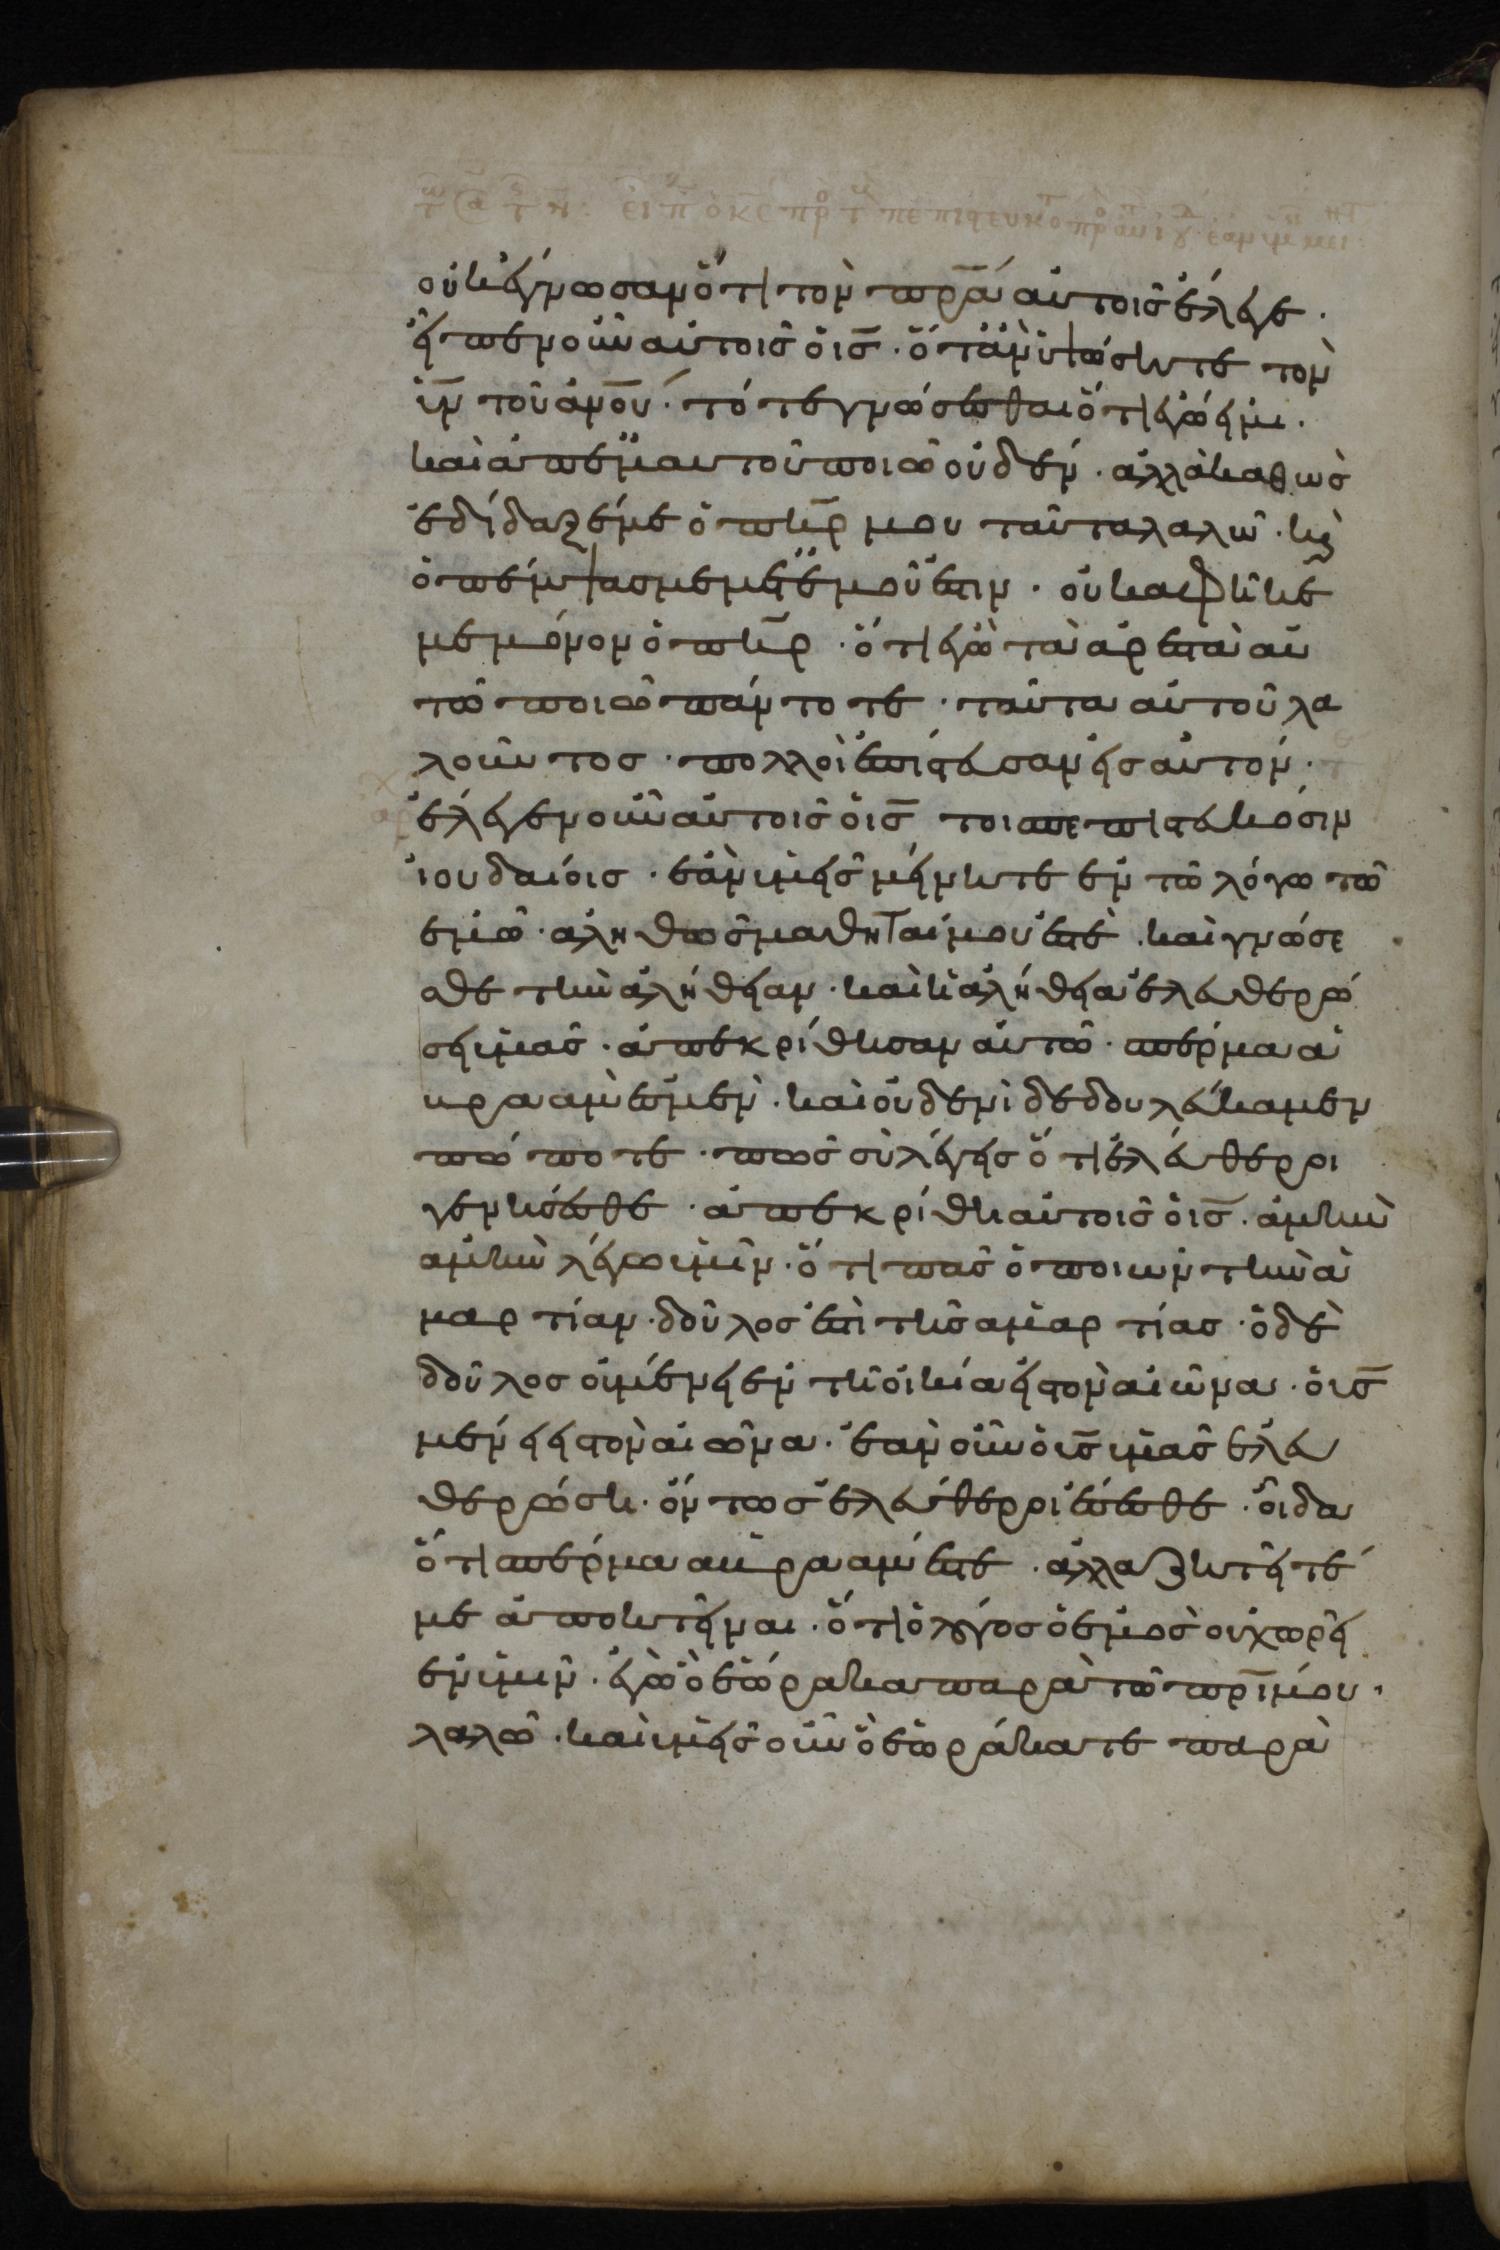 οὐκ ἔγνωσαν ὅτι τὸν πρ̅α αὐτοῖς ἔλεγε ·
εἶπεν οὖν αὐτοῖς ὁ ις̅ · ὅταν ὑψώσητε τὸν
υν̅ τοῦ ανου̅ · τότε γνώσεσθαι ὅτι ἐγώ εἰμι ·
καὶ ἀπεμαυτοῦ ποιῶ οὐδέν · ἀλλὰ καθὼς
ἐδίδαξέ με ὁ πη̅ρ μου ταῦτα λαλῶ · κ̀
ὁ πέμψας με μετ ἐμοῦ ἐστιν · οὐκ ἀφῆκέ
με μόνον ὁ πη̅ρ · ὅτι ἐγὼ τὰ ἀρεστὰ αὐ
τῶ ποιῶ πάντοτε · ταῦτα αὐτοῦ λα
λοῦντος · πολλοὶ ἐπίστευσαν εἰς αὐτόν ·
ἔλεγεν οὖν αὐτοῖς ὁ ις̅ τοὺς πεπιστευκόσιν
ἰουδαίοις · ἐὰν ὑμεῖς μείνητε ἐν τῶ λόγω τῶ
ἐμῶ · ἀληθῶς μαθηταί μου ἐστὲ · καὶ γνώσε
σθε τὴν ἀλήθειαν · καὶ ἡ ἀλήθεια ἐλευθερώ
σει ὑμᾶς · ἀπεκρίθησαν αὐτῶ · σπέρμα ἀ
βραάμ ἐσμεν · καὶ οὐδενὶ δεδουλεύκαμεν
πώποτε · πῶς σὺ λέγεις ὅτι ἐλεύθεροι
γενήσεσθε · ἀπεκρίθη αὐτοῖς ὁ ις̅ · ἀμὴν
ἀμὴν λέγω ὑμῖν · ὅτι πᾶς ὁ ποιῶν τὴν ἁ
μαρτίαν · δοῦλος ἐστὶ τῆς ἁμαρτίας · ὁ δὲ
δοῦλος οὐ μένει ἐν τῆ οἰκία εἰς τὸν αἰῶνα · ὁ υς̅
μένει εἰς τὸν αἰῶνα · ἐὰν οὖν ὁ υς̅ ὑμᾶς ἐλευ
θερώση · ὄντως ἐλεύθεροι ἔσεσθε · οἶδα
ὅτι σπέρμα ἀβραάμ ἐστε · ἀλλὰ ζητεῖτέ
με ἀποκτεῖναι · ὅτι ὁ λόγος ὁ ἐμὸς οὐ χωρεῖ
ἐν ὑμῖν · ἐγὼ ὃ ἑώρακα παρὰ τῶ πρ̅ι μου ·
λαλῶ · καὶ ὑμεῖς οὖν ὃ ἑωράκατε παρὰ